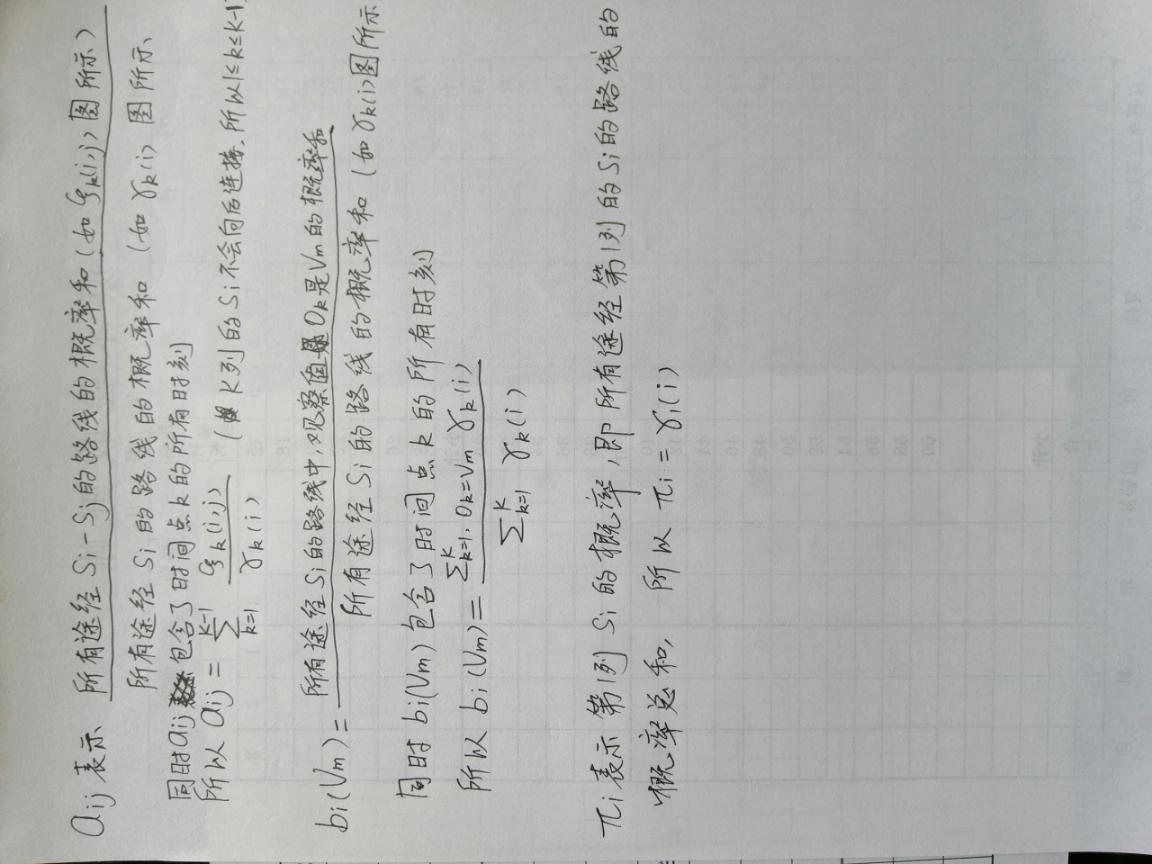 aij 表示 所有途经 Si-Sj 的路线的概率和 (如 ξk(i,j) 图所示)
所有途经 Si 的路线的概率和 (如 γk(i) 图所示、
同时aij 包含了时间点k的所有时刻
所以 aij = ∑_{k=1}^{K-1} ξk(i,j) / γk(i) (K列的Si不会向后连接,所以1≤k≤K-1
bi(Vm) = 所有途经Si的路线中,观察值Ok是Vm的概率和
所有途经Si的路线的概率和 (如γk(i)图所示
同时 bi(Vm) 包含了时间点k的所有时刻
所以 bi(Vm) = ∑_{k=1, Ok=Vm}^{K} γk(i) / ∑_{k=1}^{K} γk(i)
πi 表示第1列Si的概率,即所有途经第1列的Si的路线的
概率总和, 所以 πi = γ1(i)